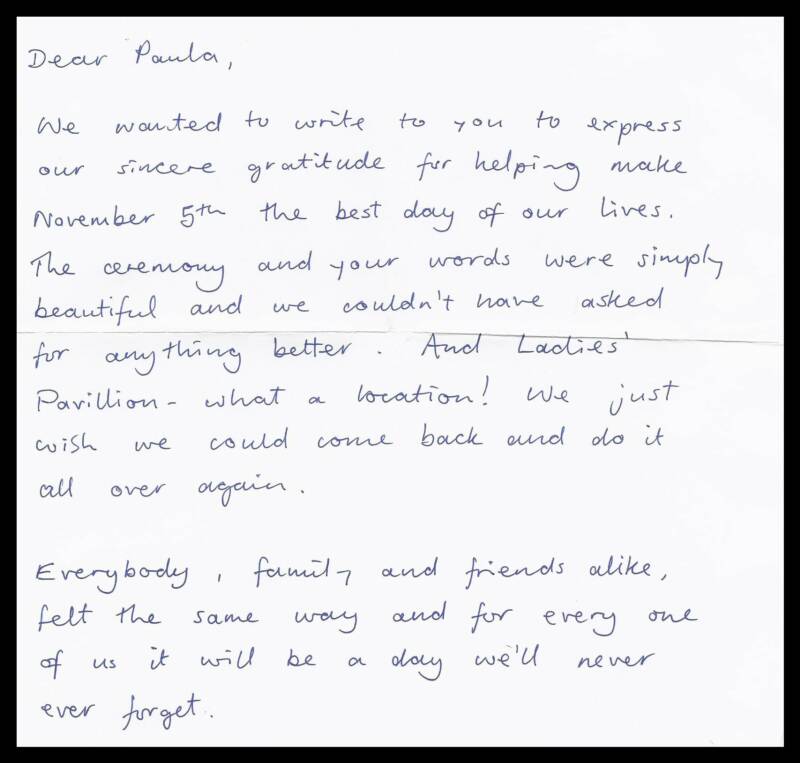 Dear Paula,
We wanted to write to you to express
our sincere gratitude for helping make
November 5th the best day of our lives.
The ceremony and your words were simply
beautiful and we couldn't have asked
for anything better. And Ladies'
Pavillion - what a location! We just
wish we could come back and do it
all over again.
Everybody, family and friends alike,
felt the same way and for every one
of us it will be a day we'll never
ever forget.